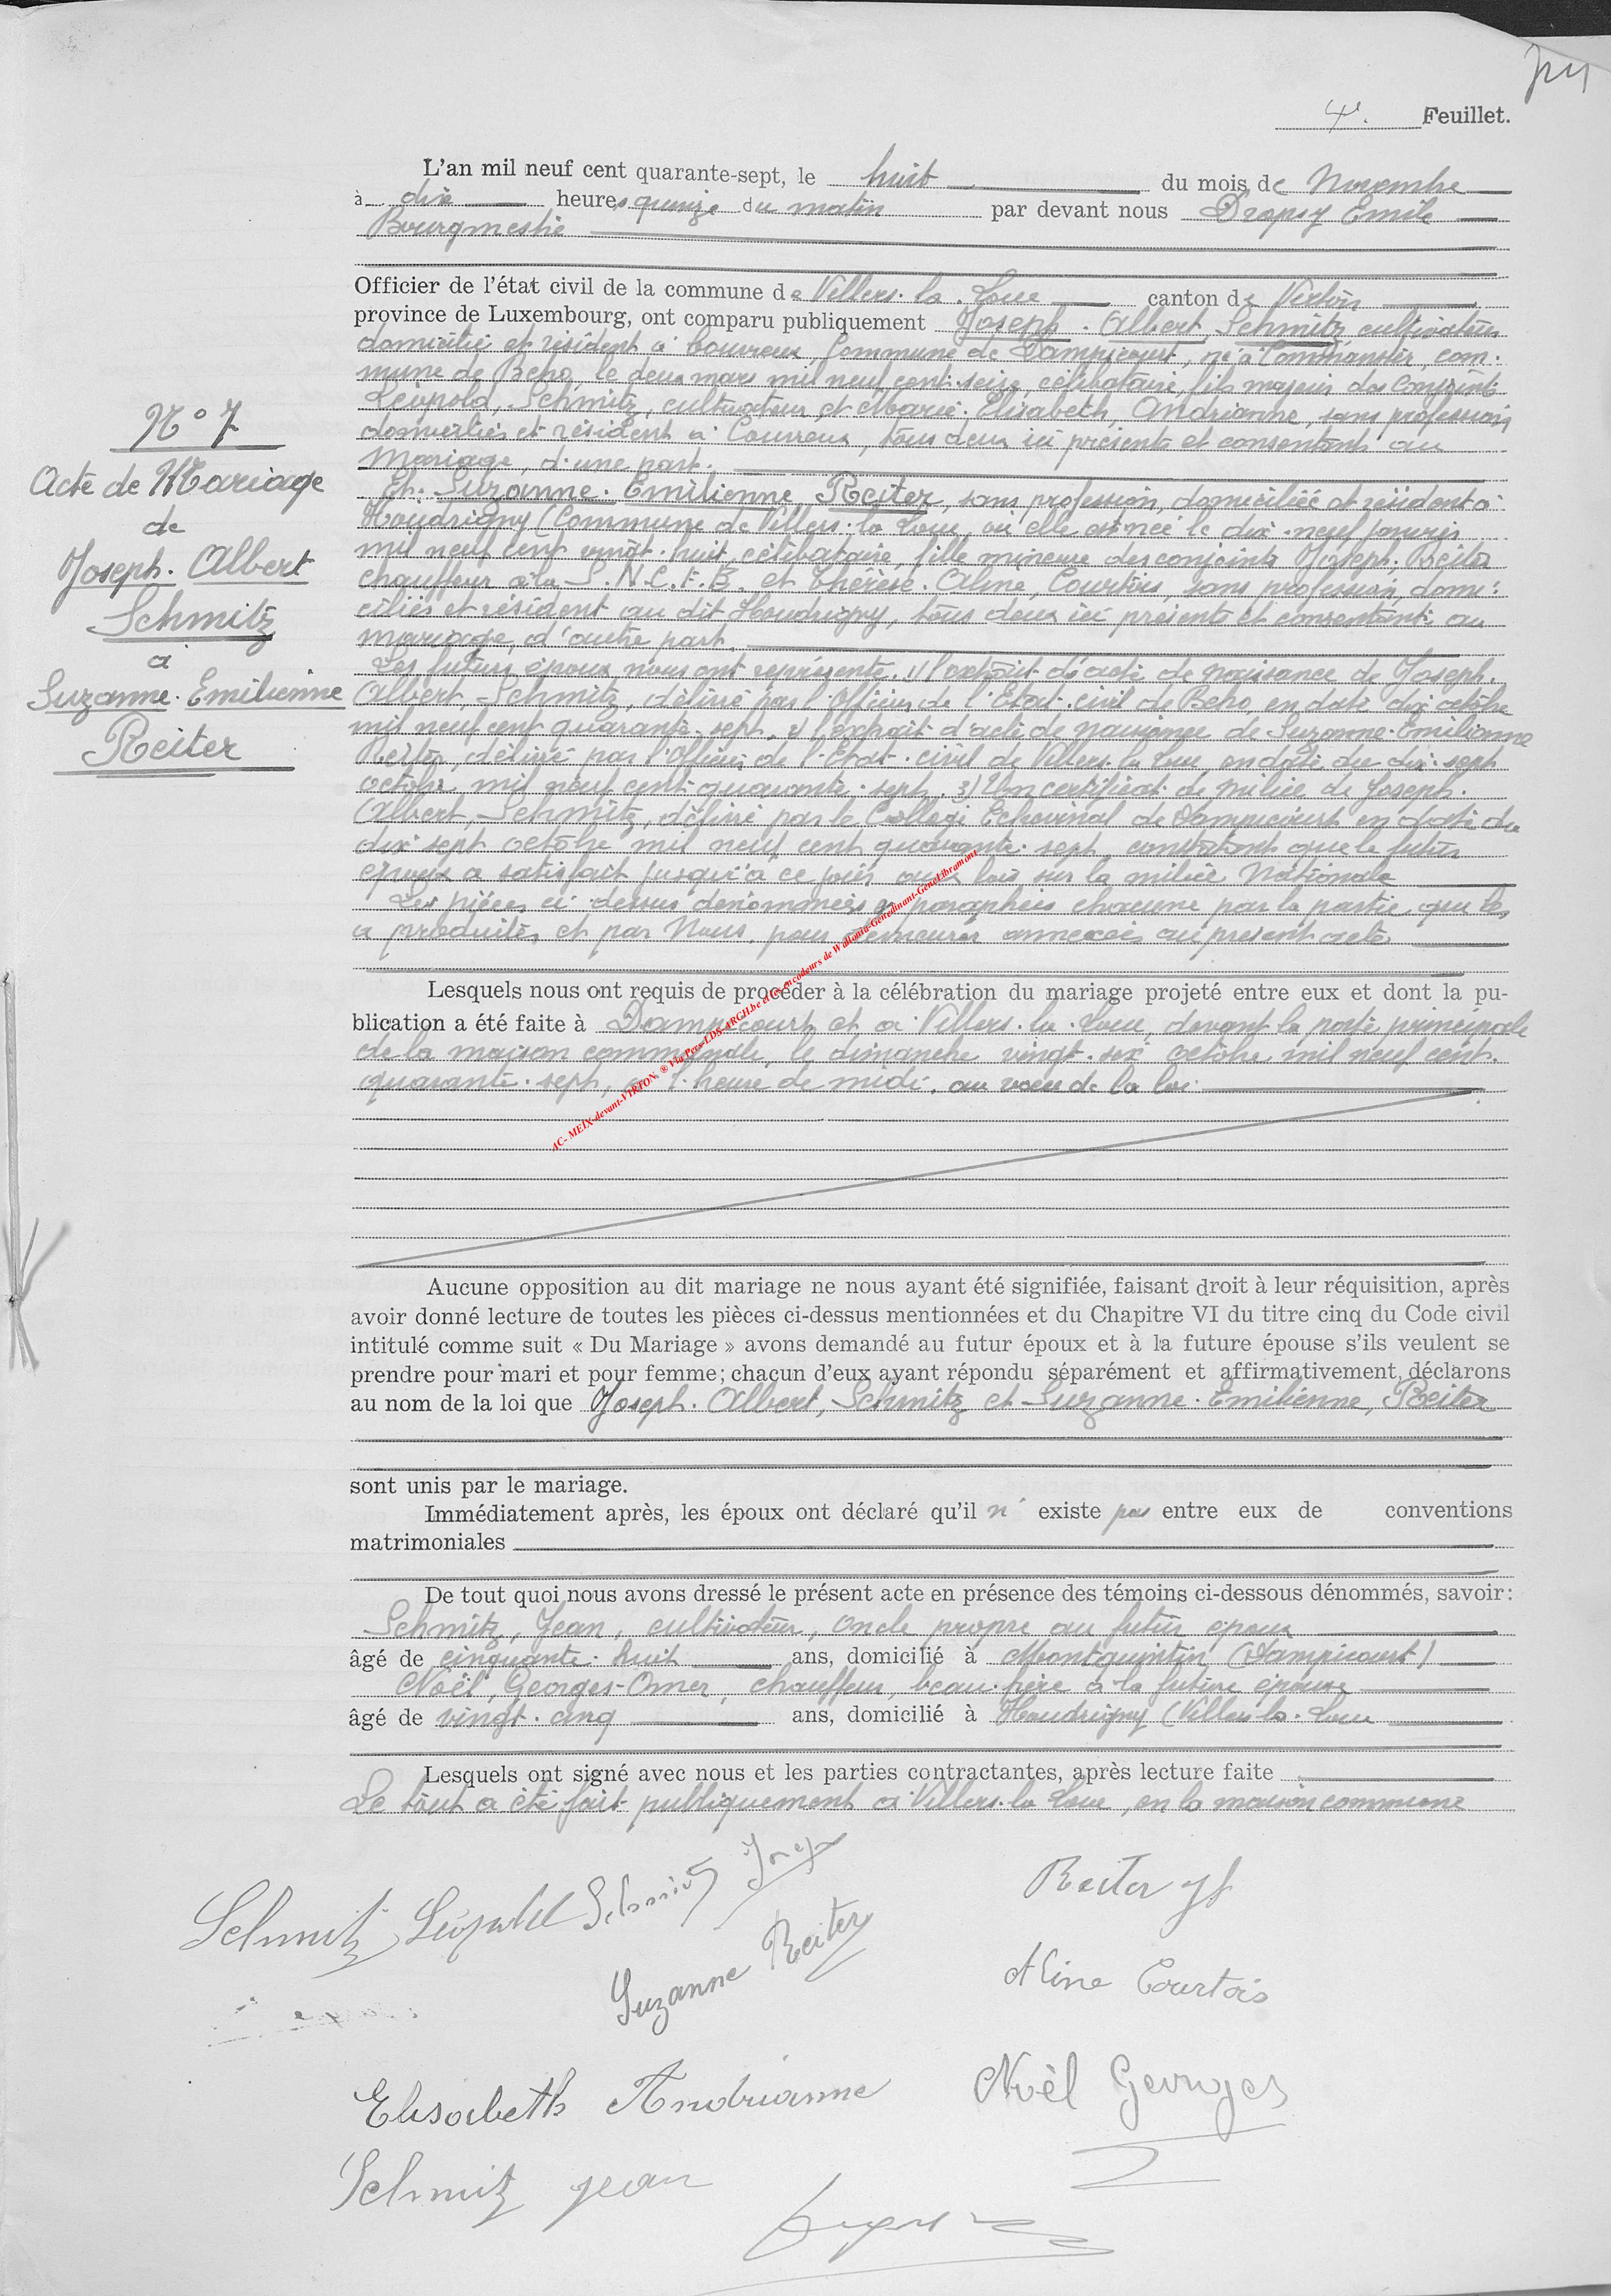 4e. Feuillet.
L'an mil neuf cent quarante-sept, le huit du mois de Novembre
à dix heures quinze du matin par devant nous Dropsy Emile
Bourgmestre
Officier de l'état civil de la commune de Villers-la-Loue canton de Virton
province de Luxembourg, ont comparu publiquement Joseph-Albert Schmitz, cultivateur
domicilié et résident à Couvreux, Commune de Dampicourt, né à Commanster, com-
mune de Beho, le deux mars mil neuf cent seize, célibataire, fils majeur des conjoints
Léopold, Schmitz, cultivateur, et Marie-Elisabeth, Andrianne, sans profession
domiciliés et résident à Couvreux, tous deux ici présents et consentant au
Mariage, d'une part.
Et Suzanne-Emilienne Reiter, sans profession, domiciliée et résident à
Houdrigny (Commune de Villers-la-Loue, où elle est née le dix-neuf janvier
mil neuf cent vingt-huit, célibataire, fille mineure des conjoints Joseph Reiter
chauffeur à la S.N.C.F.B. et Thérèse-Aline, Courtois, sans profession, domi-
ciliés et résident au dit Houdrigny, tous deux ici présents et consentant au
mariage, d'autre part.
Les futurs époux nous ont représenté. 1) l'extrait d'acte de naissance de Joseph-
Albert, Schmitz, délivré par l'Officier de l'Etat-civil de Beho, en date dix octobre
mil neuf cent quarante-sept. 2) l'extrait d'acte de naissance de Suzanne-Emilienne
Reiter, délivré par l'Officier de l'Etat-civil de Villers-la-Loue, en date du dix-sept
octobre mil neuf cent quarante-sept. 3) Un certificat de milice de Joseph-
Albert, Schmitz, délivré par le Collège Echevinal de Dampicourt en date du
dix-sept octobre mil neuf cent quarante-sept, constatant que le futur
époux a satisfait jusqu'à ce jour aux lois sur la milice Nationale
Les pièces ci-dessus dénommées paraphées chacune par la partie qui les
a produites, et par Nous, pour demeurer annexées au présent acte
Lesquels nous ont requis de procéder à la célébration du mariage projeté entre eux et dont la pu-
blication a été faite à Dampicourt et à Villers-la-Loue, devant la porte principale
de la maison communale, le dimanche vingt-six octobre mil neuf cent-
quarante-sept, à l'heure de midi, au voeu de la loi.
AC- MEIX-devant-VIRTON. ® Via Pres-LDS-ARGH.be et les encodeurs de Wallonia-Genedinant-GeneLibramont
Aucune opposition au dit mariage ne nous ayant été signifiée, faisant droit à leur réquisition, après
avoir donné lecture de toutes les pièces ci-dessus mentionnées et du Chapitre VI du titre cinq du Code civil
intitulé comme suit « Du Mariage » avons demandé au futur époux et à la future épouse s'ils veulent se
prendre pour mari et pour femme; chacun d'eux ayant répondu séparément et affirmativement, déclarons
au nom de la loi que Joseph-Albert, Schmitz et Suzanne-Emilienne, Reiter
sont unis par le mariage.
Immédiatement après, les époux ont déclaré qu'il n' existe pas entre eux de conventions
matrimoniales
De tout quoi nous avons dressé le présent acte en présence des témoins ci-dessous dénommés, savoir:
Schmitz, Jean, cultivateur, oncle propre au futur époux
âgé de cinquante-huit ans, domicilié à Montquintin (Dampicourt)
Noël, Georges-Omer, chauffeur, beau-frère à la future épouse
âgé de vingt-cinq ans, domicilié à Houdrigny (Villers-la-Loue
Lesquels ont signé avec nous et les parties contractantes, après lecture faite
Le tout a été fait publiquement à Villers-la-Loue, en la maison commune
N° 7
Acte de Mariage
de
Joseph-Albert
Schmitz
à
Suzanne-Emilienne
Reiter
Schmitz Léopold Schmitz Josep
Reiter Jh
Suzanne Reiter
Aline Courtois
Elisabeth Andrianne
Noël Georges
Schmitz Jean